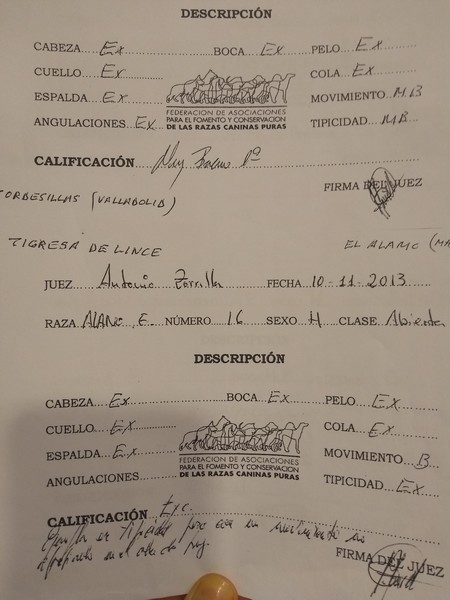 DESCRIPCIÓN
CABEZA...Ex... BOCA...Ex... PELO...Ex...
CUELLO...Ex... COLA...Ex...
ESPALDA...Ex... MOVIMIENTO...M.B
ANGULACIONES...Ex... TIPICIDAD...M.B...
FEDERACION DE ASOCIACIONES
PARA EL FOMENTO Y CONSERVACION
DE LAS RAZAS CANINAS PURAS
CALIFICACIÓN...Muy Bueno 1º
FIRMA DEL JUEZ
TORDESILLAS (VALLADOLID)
TIGRESA DE LINCE EL ALAMO (MA
JUEZ...Antonio... FECHA...10-11-2013
RAZA...ALANO E....NÚMERO...16...SEXO...H...CLASE...Abierta
DESCRIPCIÓN
CABEZA...Ex... BOCA...Ex... PELO...Ex...
CUELLO...Ex... COLA...Ex...
ESPALDA...Ex... MOVIMIENTO...B
ANGULACIONES... TIPICIDAD...Ex...
FEDERACION DE ASOCIACIONES
PARA EL FOMENTO Y CONSERVACION
DE LAS RAZAS CANINAS PURAS
CALIFICACIÓN...Exc.
FIRMA DEL JUEZ